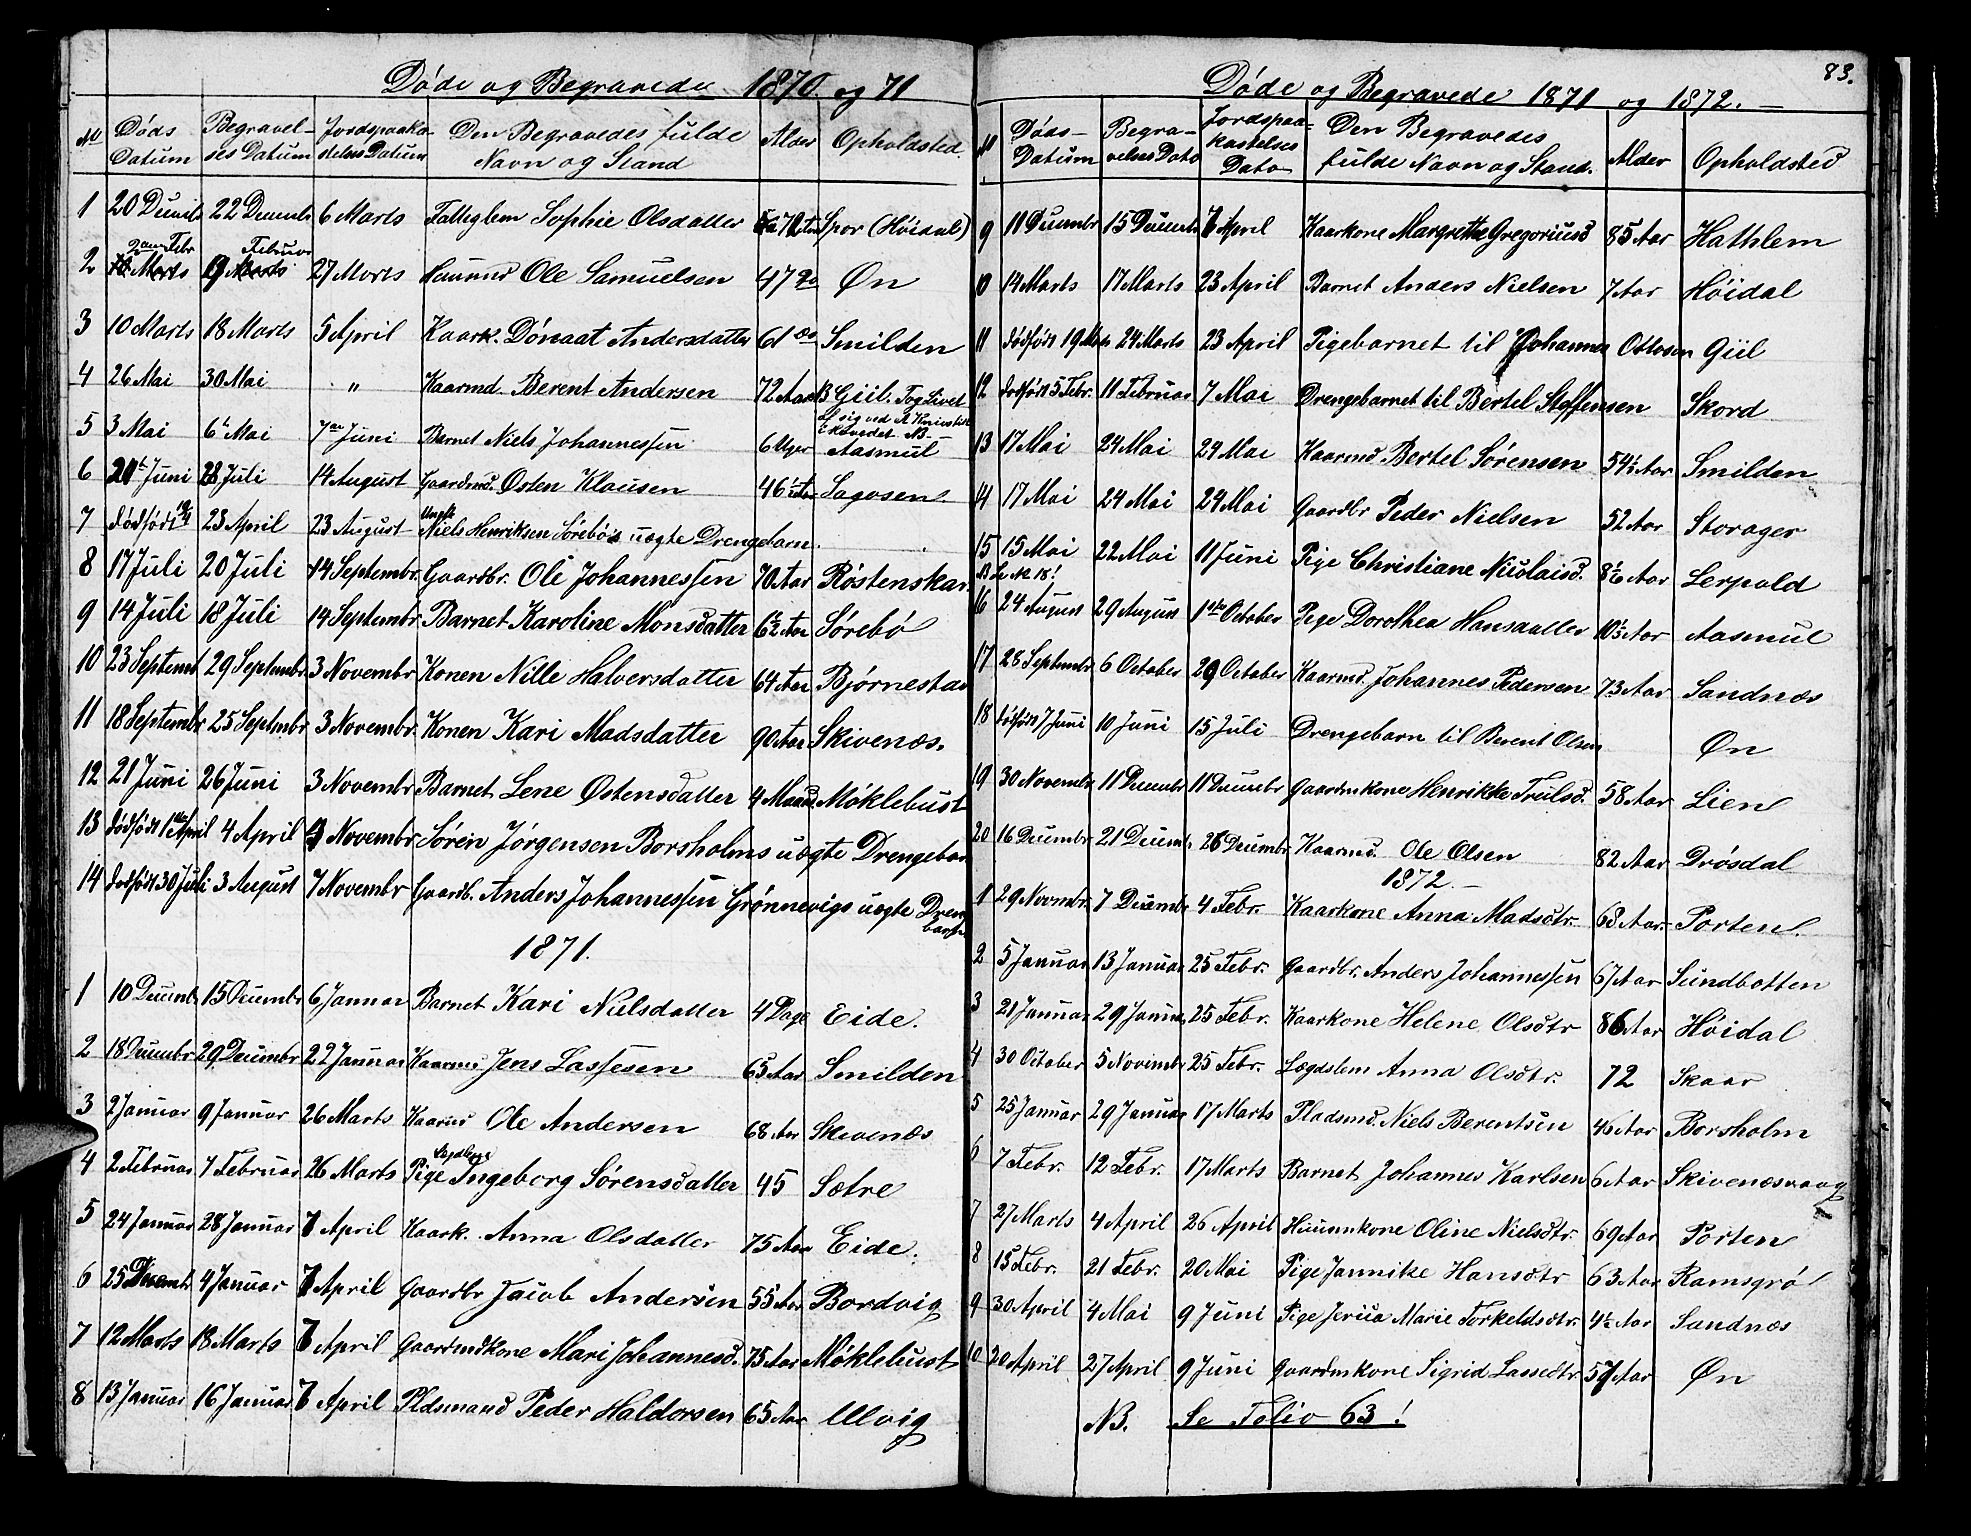 Døde og Begravede 1870 og 71
No Døds Datum Begravelses Datum Jordspaakastelses Datum Den Begravedes fulde Navn og Stand Alder Opholdsted
1 20 Decmb 22 Decembr 6 Marts Fattiglem Sophie Olsdatter 70 Aar Spor (Høidal)
2 2den Febr 9 Februar 27 Marts Huusmd Ole Samuelsen 47 do Øn
3 10 Marts 18 Marts 5 April Kaark. Dónaat Andersdatter 61 do Smilden
4 26 Mai 30 Mai " Kaarmd. Berent Andersen 72 Aar B Giil. Tog Livet
af sig ved Knivstik
5 3 Mai 6te Mai 7de Juni Barnet Niels Johannessen 6 Uger Aasmul
6 21de Juni 28 Juli 14 August Gaardmd. Østen Klausen 46 1/2 Aar Sagosen
7 dødfødt 18/4 23 April 23 August Ungk. Niels Henriksen Sørebø's uægte Drengebarn
8 17 Juli 20 Juli 14 Septembr. Gaardbr. Ole Johannessen 70 Aar Røstenskar
9 14 Juli 18 Juli 14 Septembr. Barnet Karoline Monsdatter 6 1/2 Aar Sørebø
10 23 Septemb 29 Septembr 3 Novembr Konen Nille Halversdatter 64 Aar Bjørnestad
11 18 Septembr 25 Septmbr 3 Novembr. Konen Kari Madsdatter 90 Aar Skivenæs.
12 21 Juni 26 Juni 3 Novembr Barnet Lene Østensdatter 4 Maand Møklebust
13 dødfødt 1ste April 4 April 4 Novembr Søren Jørgensen Borsholms uægte Drengebar
14 dødfødt 30 Juli 3 August 7 Novembr Gaardb. Anders Johannessen Grønnevigs uægte Drenge
barn
1871.
1 10 Decmb 15 Decembr 6 Januar Barnet Kari Nielsdatter 4 Dage Eide.
2 18 Decmbr 29 Decmbr 22 Januar Kaarmd Jens Lassesen 65 Aar Smilden
3 2 Januar 9 Januar 26 Marts Kaarmd Ole Andersen 68 Aar Skivenæs
4 2 Februar 7 Februar 26 Marts Pige Ingeborg Sørensdatter 45 Sætre
5 24 Januar 28 Januar 7 April Kaark. Anna Olsdatter 75 Aar Eide.
6 25 Decemb. 4 Januar 7 April Gaardbr Jacob Andersen 55 Aar Bordvig
7 12 Marts 18 Marts 7 April Gaardmdkone Mari Johannesd. 75 Aar Møklebust
8 13 Januar 16 Januar 7 April Pldsmand Peder Haldorsen 65 Aar Ulvig
83.
Døde og Begravede 1871 og 1872.
No Døds-Datum Begravelses Dato Jordspaakastelses Dato Den Begravedes fulde Navn og Stand. Alder Opholdsted
9 11 Decembr 15 Decemb 7 April Kaarkone Margrethe Gregoriusd 85 Aar Hathlem
10 14 Marts 17 Marts 23 April Barnet Anders Nielsen 7 Aar Høidal
11 dødfødt 19 Marts 24 Marts 23 April Pigebarnet til Johannes Ottosen Giil
12 dødfødt 5 Febr. 11 Februar 7 Mai Drengebarnet til Bertel Steffensen Skord
13 17 Mai 24 Mai 24 Mai Kaarmd. Bertel Sørensen 54 1/2 Aar Smilden
14 17 Mai 24 Mai 24 Mai Gaardbr Peder Nielsen 52 Aar Storager
15 15 Mai 22 Mai 11 Juni Pige Christiane Nicolaisd. 8 1/6 Aar Lerpold
NB Se No 18!
16 24 August 29 August 1ste October Pige Dorothea Hansdatter 10 1/2 Aar Aasmul
17 28 Septembr 6 October 29 October Kaarmd. Johannes Pedersen 73 Aar Sandnæs
18 dødfødt 7 Juni 10 Juni 15 Juli Drengebarn til Berent Olsen Øn
19 30 Novembr 11 Decmbr 11 Decmbr Gaardmkone Henrikke Trulsd. 58 Aar Lien
20 16 Decmbr 21 Decmb. 26 Decmbr Kaarmd. Ole Olsen 82 Aar Drøsdal
1872.
1 29 Novmbr 7 Decembr 4 Febr. Kaarkone Anna Madsdtr. 68 Aar Porten.
2 5 Januar 13 Januar 25 Febr. Gaardbr. Anders Johannessen 67 Aar Sundbotten
3 21 Januar 29 Januar 25 Febr. Kaarkone Helene Olsdtr 86 Aar Høidal
4 30 October 5 Novembr 25 Febr. Lægdslem Anna Olsdtr. 72 Skaar
5 25 Januar 29 Januar 17 Marts Pladsmd. Niels Berentsen 46 Aar Borsholm
6 7 Febr. 12 Febr. 17 Marts Barnet Johannes Karlsen 6 Aar Skivenæsvaag
7 27 Marts 4 April 26 April Huusmkone Oline Nielsdtr. 69 Aar Porten
8 15 Febr. 21 Febr. 20 Mai Pige Jannike Hansdtr 63 Aar Ramsgrø
9 30 April 4 Mai 9 Juni Pige Marie Torkeldsdtr. 4 1/2 Aar Sandnæs
10 20 April 27 April 9 Juni Gaardmkone Sigrid Lassedtr. 57 Aar Øn
NB. Se Folio 63!